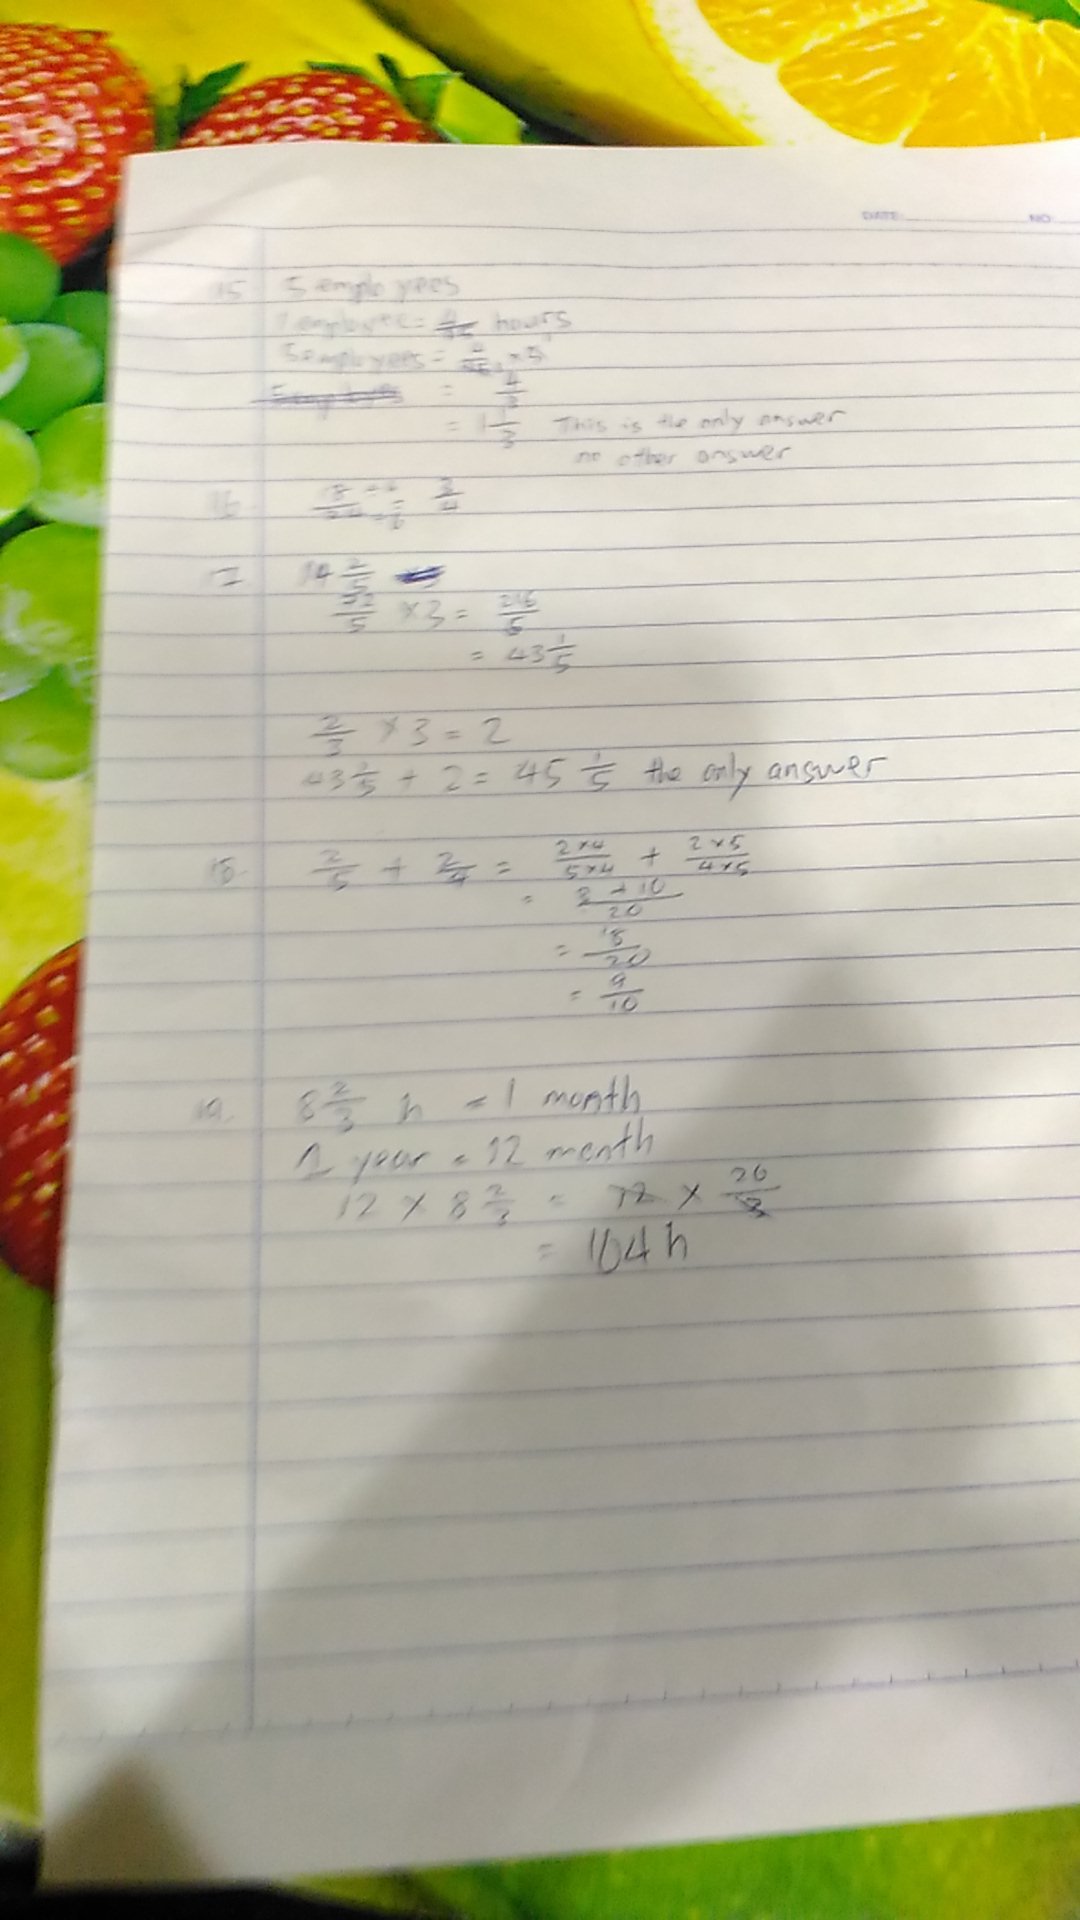 DATE: NO
15 5 employees
1 employee = hours
5 employees = × 5
= 4/3
= 1 1/3 This is the only answer
no other answer
16 18/24 ÷6 ÷6 = 3/4
17 14 2/5
72/5 × 3 = 216/5
= 43 1/5
2/3 × 3 = 2
43 1/5 + 2 = 45 1/5 the only answer
18. 2/5 + 2/4 = 2×4/5×4 + 2×5/4×5
= 8 + 10/20
= 18/20
= 9/10
19. 8 2/3 h = 1 month
1 year = 12 month
12 × 8 2/3 = 12 × 26/3
= 104 h